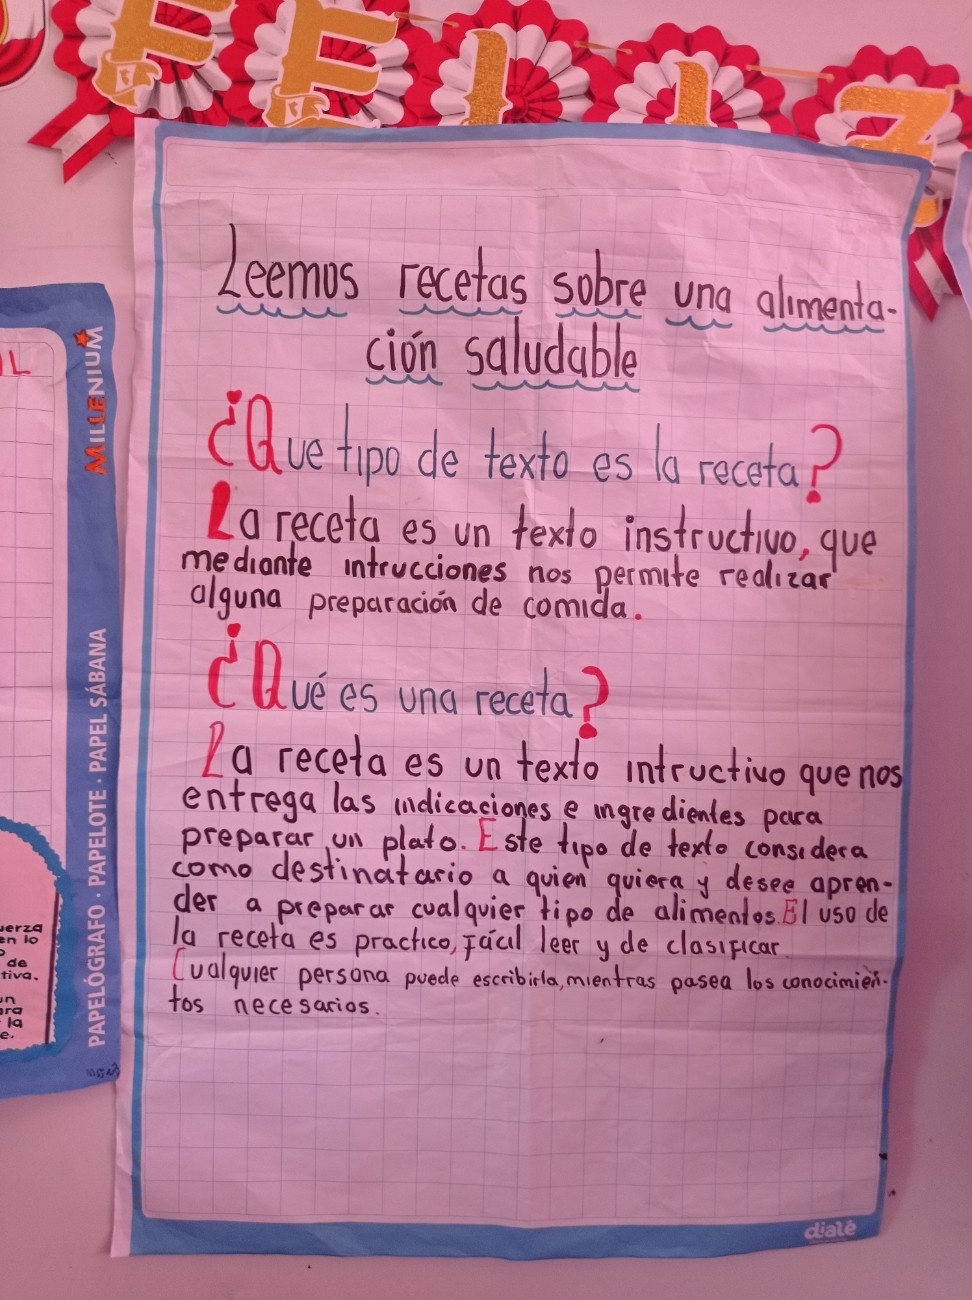 FELIZ
MILLENIUM
PAPELÓGRAFO · PAPELOTE · PAPEL SÁBANA
Leemos recetas sobre una alimenta-
ción saludable
¿Que tipo de texto es la receta?
La receta es un texto instructivo, que
mediante intrucciones nos permite realizar
alguna preparación de comida.
¿Qué es una receta?
La receta es un texto intructivo que nos
entrega las indicaciones e ingredientes para
preparar un plato. Este tipo de texto considera
como destinatario a quien quiera y desee apren-
der a preparar cualquier tipo de alimentos. El uso de
la receta es practico, fácil leer y de clasificar.
Cualquier persona puede escribirla, mientras pasea los conocimien-
tos necesarios.
dialé